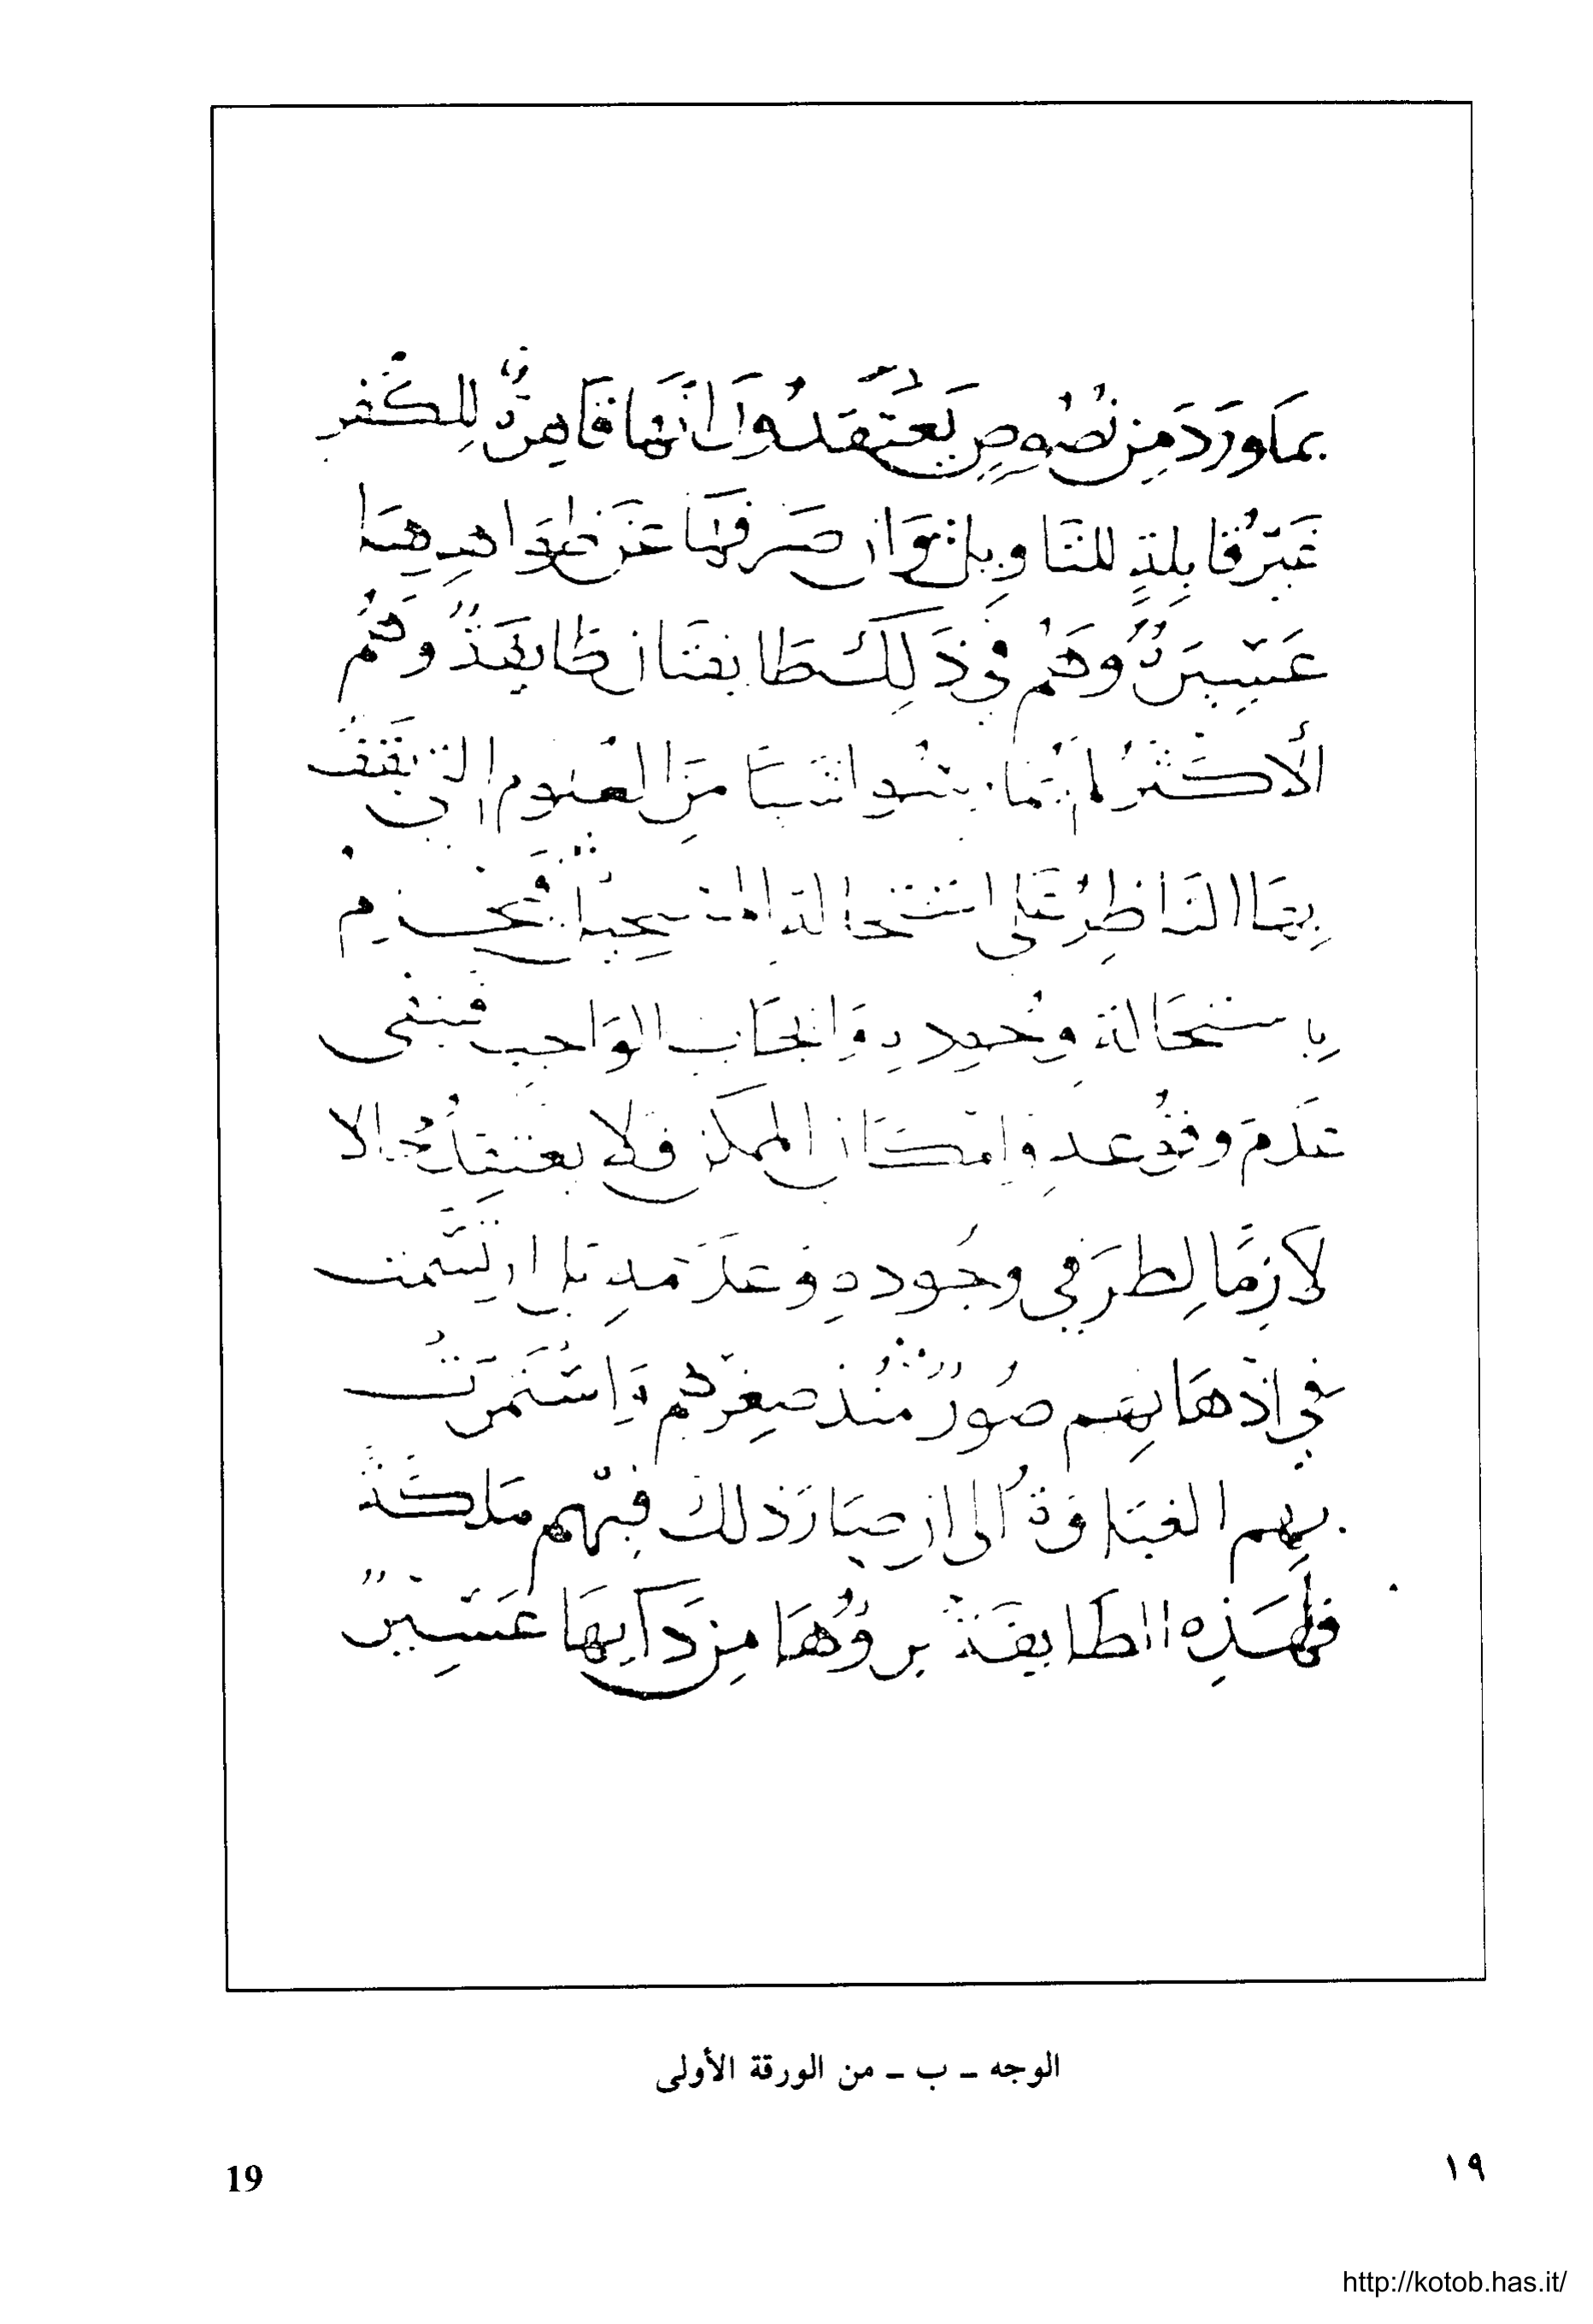 بِمَا وَرَدَ مِن نُصُوصٍ يَعْتَقِدُونَ انَّهَا قَاهِرَةٌ لِلفكر
غَيْرُ قَابِلَةٍ للتَاوِيل وَان صَرفَهَا عَن ظَوَاهِرِهَا
عَسِيرَةٌ وَهُم فِي ذَلِكَ طَايفتَان طَايِفَةٌ وَهُمُ
الأكثَرُ لم يُمَارِسُوا شيئا مِنَ العلوم التي يَقِفُ
بِهَا النَاظِرُ عَلى استحالة المستحيل فَيجزم
بِاستحَالةِ وُجودِهِ وَايجَاب الوَاجِب فينفى
عَدَمَ وقُوعه وَامكَان الممكن فَلا يعتقدُ محالا
لازِمًا لِطَرَفي وجُودِهِ وَعَدَمِهِ بَل ارتَسَمت
في اذهَانِهِم صُوَرٌ مُنذ صِغَرِهُم وَاستَمَرَّتُ
بِهِم الغبَاوَةُ الى ان صَارَ ذلك فِيهِم مَلَكَةً
فَلِهَذِهِ الطَايفَةُ بُرؤُهَا مِن دَائِهَا عَسِيرٌ
الوجه - ب - من الورقة الأولى
19
١٩
http://kotob.has.it/